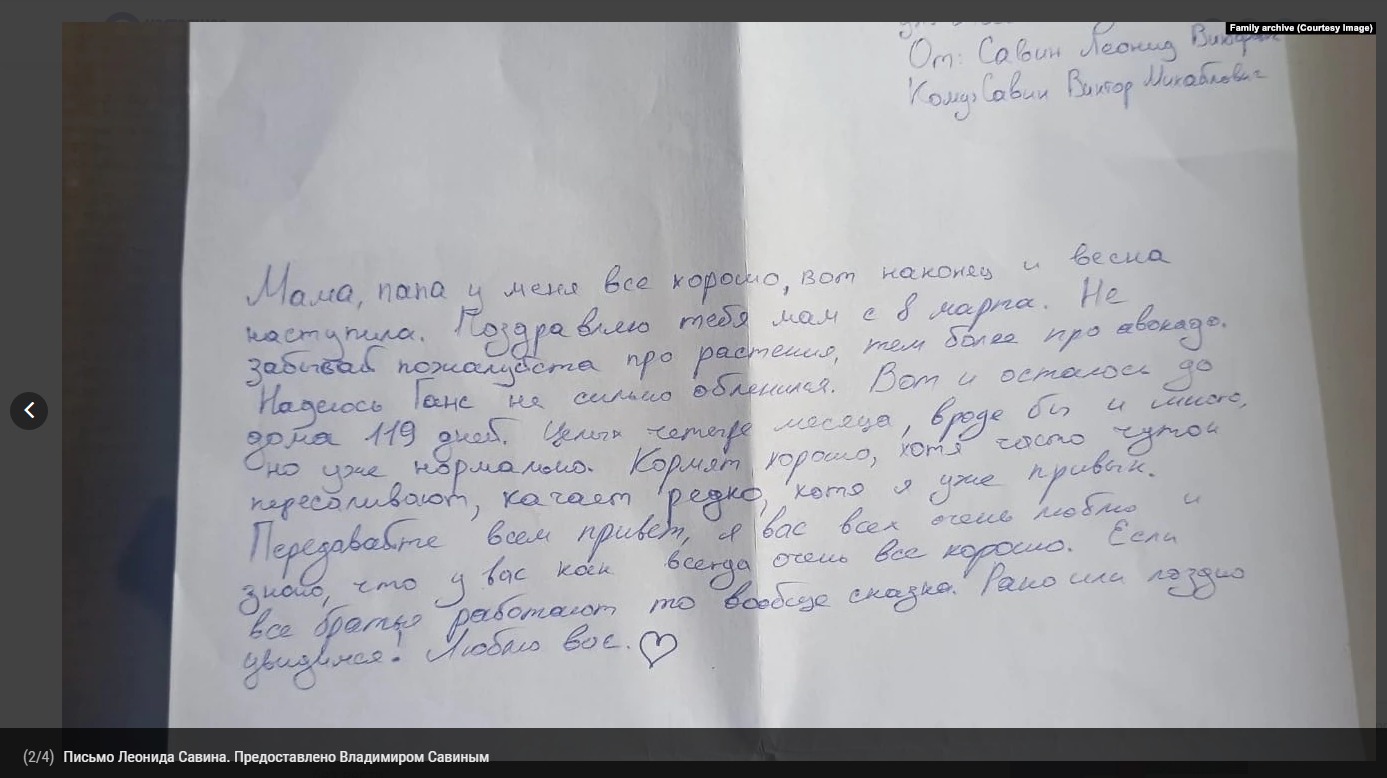 Family archive (Courtesy Image)
От: Савин Леонид
Кому: Савин Виктор Михайлович
Мама, папа у меня все хорошо, вот наконец и весна
наступила. Поздравляю тебя мам с 8 марта. Не
забывай пожалуйста про растения, тем более про авокадо.
Надеюсь Ганс не сильно обленился. Вот и осталось до
дома 119 дней. Целых четыре месяца, вроде бы и много,
но уже нормально. Кормят хорошо, хотя часто чуток
пересаливают, качает редко, хотя я уже привык.
Передавайте всем привет, я вас всех очень люблю и
знаю, что у вас как всегда очень все хорошо. Если
все братья работают то вообще сказка. Рано или поздно
увидимся! Люблю вас.
(2/4) Письмо Леонида Савина. Предоставлено Владимиром Савиным